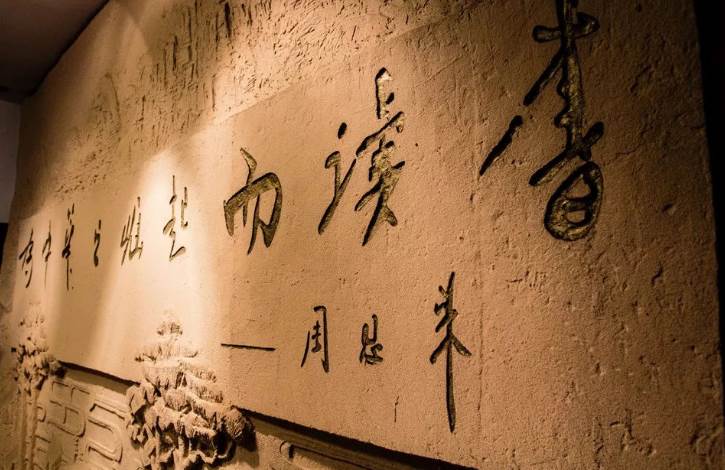 為中華之崛起而读書
—周恩来